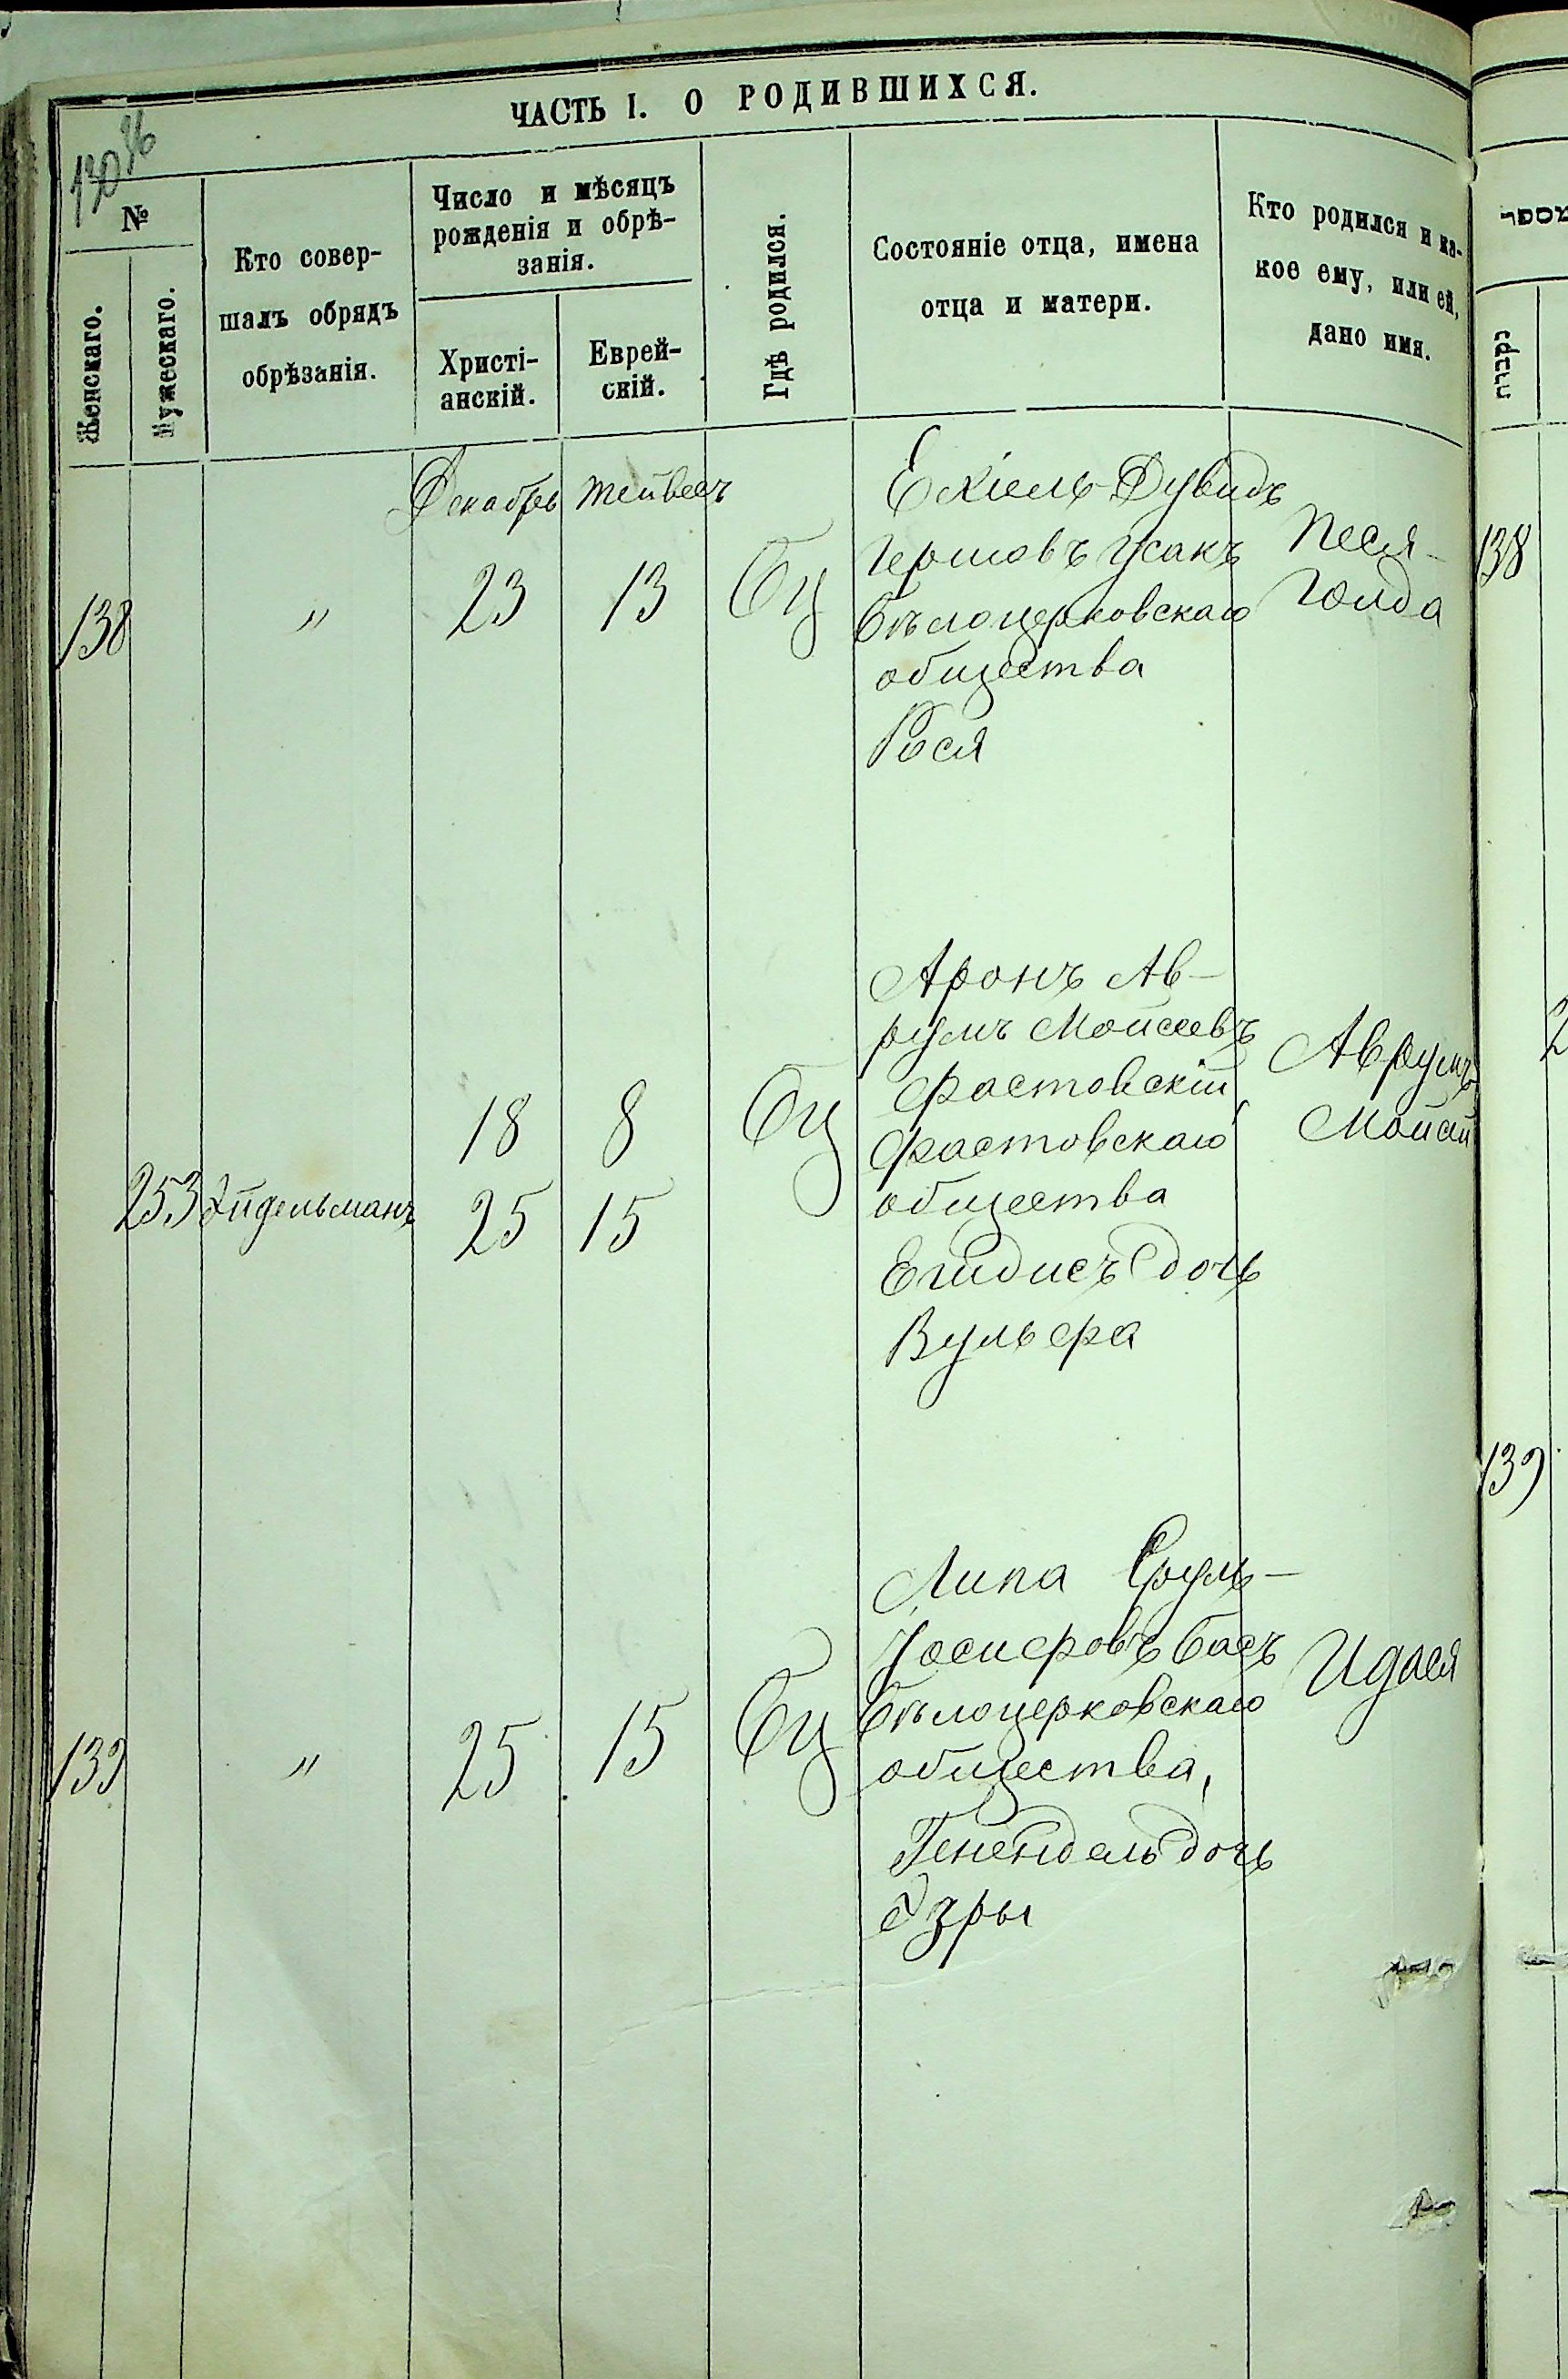 ЧАСТЬ I. О РОДИВШИХСЯ.
130 96
№
Женскаго.
Мужескаго.
Кто совер-
шалъ обрядъ
обрѣзанія.
Число и мѣсяцъ
рожденія и обрѣ-
занія.
Христі-
анскій.
Еврей-
скій.
Гдѣ родился.
Состояніе отца, имена
отца и матери.
Кто родился и ка-
кое ему, или ей,
дано имя.
Декабрь Тейвесъ
138 " 23 13 Бц
Ехіель-Дувидъ
Гершовъ Усакъ
бѣлоцерковскаго
общества
Рося
Песя-
Голда
253 Эйдельманъ
18 8 Бц
25 15
Аронъ Ав-
румъ Мойсеевъ
Фастовскій
Фастовскаго
общества
Ендисъ дочь
Вульфа
Аврумъ
Мойсей
139 " 25 15 Бц
Липа Сруль-
Іосифовъ Басъ
бѣлоцерковскаго
общества,
Генендель дочь
Эзры
Идася
מספר
נקבות
138
2
139